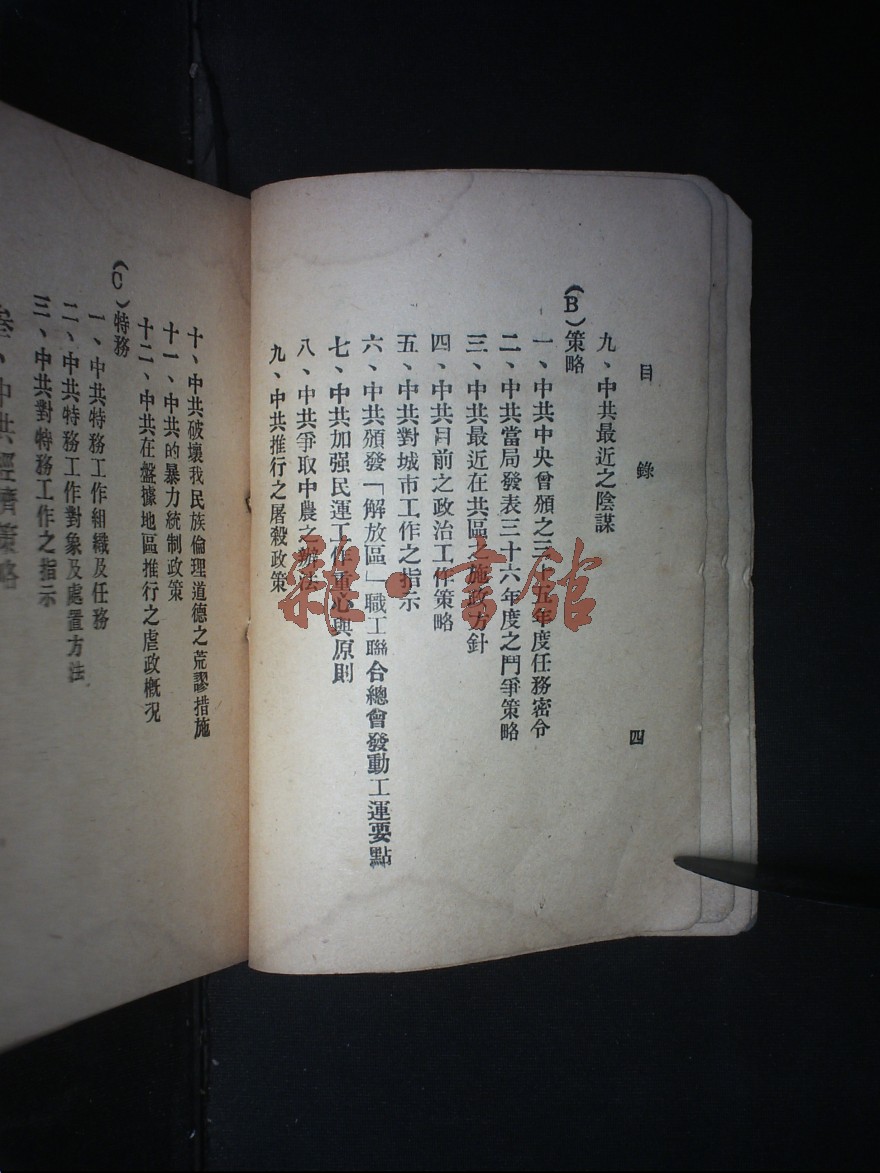 目錄
四
九、中共最近之陰謀
（B）策略
一、中共中央曾頒之三十五年度任務密令
二、中共當局發表三十六年度之鬥爭策略
三、中共最近在共區之施政方針
四、中共目前之政治工作策略
五、中共對城市工作之指示
六、中共頒發「解放區」職工聯合總會發動工運要點
七、中共加强民運工作重心與原則
八、中共爭取中農之辦法
九、中共推行之屠殺政策
十、中共破壞我民族倫理道德之荒謬措施
十一、中共的暴力統制政策
十二、中共在盤據地區推行之虐政概況
（C）特務
一、中共特務工作組織及任務
二、中共特務工作對象及處置方法
三、中共對特務工作之指示
叄、中共經濟策略
雜·書館